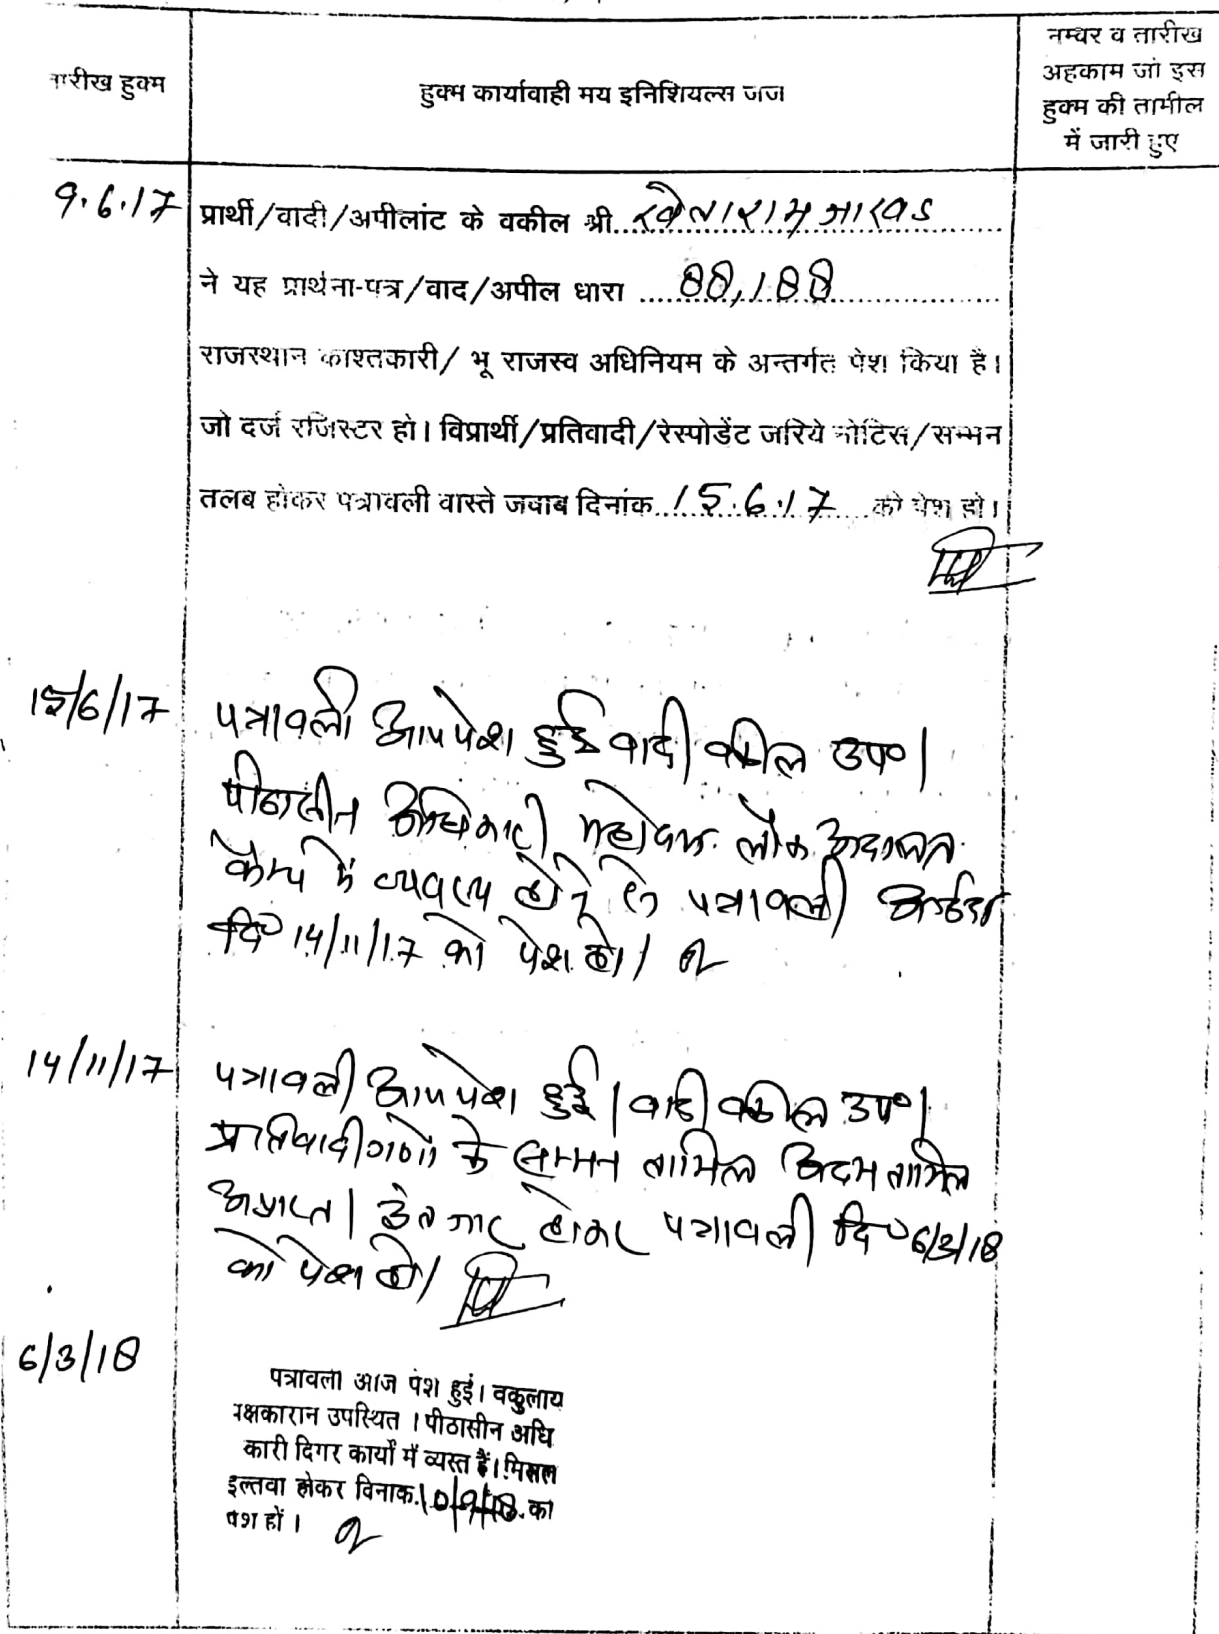 तारीख हुक्म
हुक्म कार्यावाही मय इनिशियल्स जज
नम्बर व तारीख
अहकाम जो इस
हुक्म की तामील
में जारी हुए
9.6.17
प्रार्थी/वादी/अपीलांट के वकील श्री खेताराम जाखड
ने यह प्रार्थना-पत्र/वाद/अपील धारा 88,188
राजस्थान काश्तकारी/ भू राजस्व अधिनियम के अन्तर्गत पेश किया है।
जो दर्ज रजिस्टर हो। विप्रार्थी/प्रतिवादी/रेस्पोडेंट जरिये नोटिस/सम्मन
तलब होकर पत्रावली वास्ते जवाब दिनांक 15.6.17 को पेश हो।
15/6/17
पत्रावली आज पेश हुई वादी वकील उप०।
पीठासीन अधिकारी महोदय लोक अदालत
केम्प में व्यवस्थ होने से पत्रावली
दि० 14/11/17 को पेश हो।
14/11/17
पत्रावली आज पेश हुई। वादी वकील उप०।
प्रतिवादीगणों के सम्मन तामिल अदम तामिल
अप्राप्त। इंतजार होकर पत्रावली दि० 6/3/18
को पेश हो।
6/3/18
पत्रावली आज पेश हुई। वकुलाय
पक्षकारान उपस्थित । पीठासीन अधि
कारी दिगर कार्यों में व्यस्त हैं। मिसल
इल्तवा होकर दिनांक 10/9/18 को
पेश हों ।